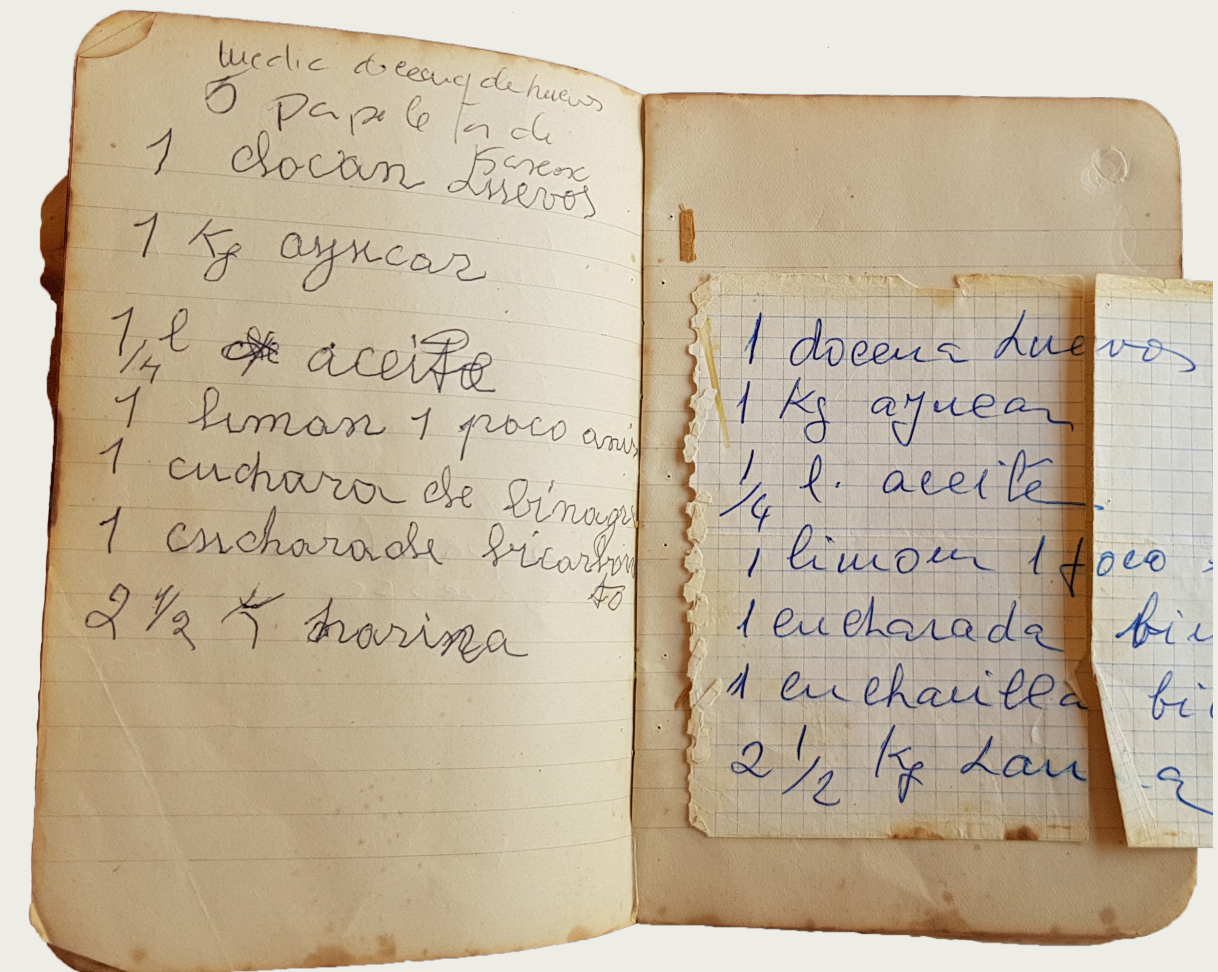 media docena de huevos
5 papeleta de
1 docan
Lssevos
1 Kg ayucar
1/4 l aceite
1 limon 1 poco anis
1 cuchara de binagr
1 cucharade bicarbon
to
2 1/2 K harina
1 docena huevos
1 Kg ayucar
1/4 l. aceite
1 limon 1 poco
1 cucharada bi
1 cucharilla bi
2 1/2 Kg